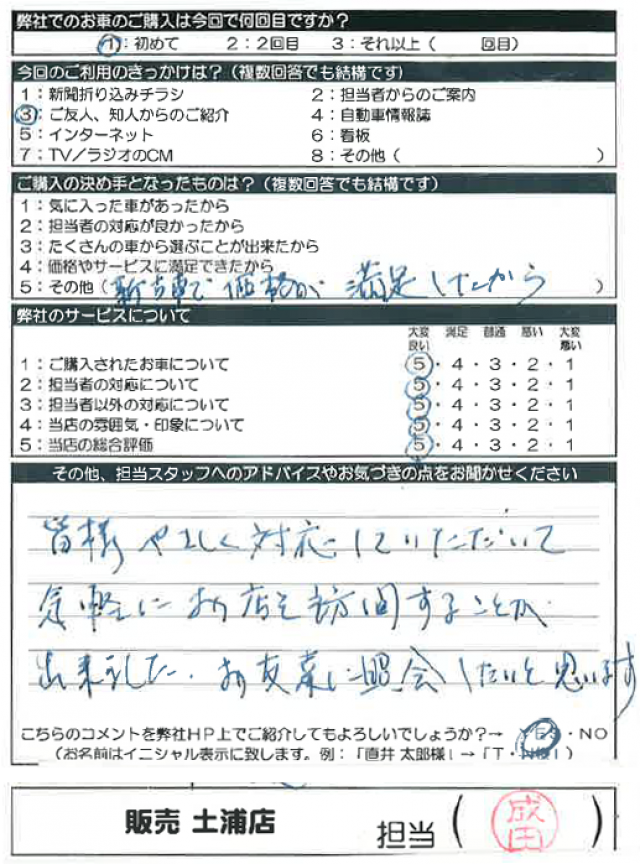 弊社でのお車のご購入は今回で何回目ですか?
1:初めて 2:2回目 3:それ以上( 回目)
今回のご利用のきっかけは?(複数回答でも結構です)
1:新聞折り込みチラシ 2:担当者からのご案内
3:ご友人、知人からのご紹介 4:自動車情報誌
5:インターネット 6:看板
7:TV/ラジオのCM 8:その他( )
ご購入の決め手となったものは?(複数回答でも結構です)
1:気に入った車があったから
2:担当者の対応が良かったから
3:たくさんの車から選ぶことが出来たから
4:価格やサービスに満足できたから
5:その他( 価格が 満足したから )
弊社のサービスについて
大変良い 満足 普通 悪い 大変悪い
1:ご購入されたお車について 5・4・3・2・1
2:担当者の対応について 5・4・3・2・1
3:担当者以外の対応について 5・4・3・2・1
4:当店の雰囲気・印象について 5・4・3・2・1
5:当店の総合評価 5・4・3・2・1
その他、担当スタッフへのアドバイスやお気づきの点をお聞かせください
皆様 やさしく対応していただいて
気軽に お店を訪問することが
出来ました。お友達に紹介したいと思います
こちらのコメントを弊社HP上でご紹介してもよろしいでしょうか?→ YES・NO
(お名前はイニシャル表示に致します。例:「直井 太郎様」→「T・N様」)
販売 土浦店 担当( 成田 )